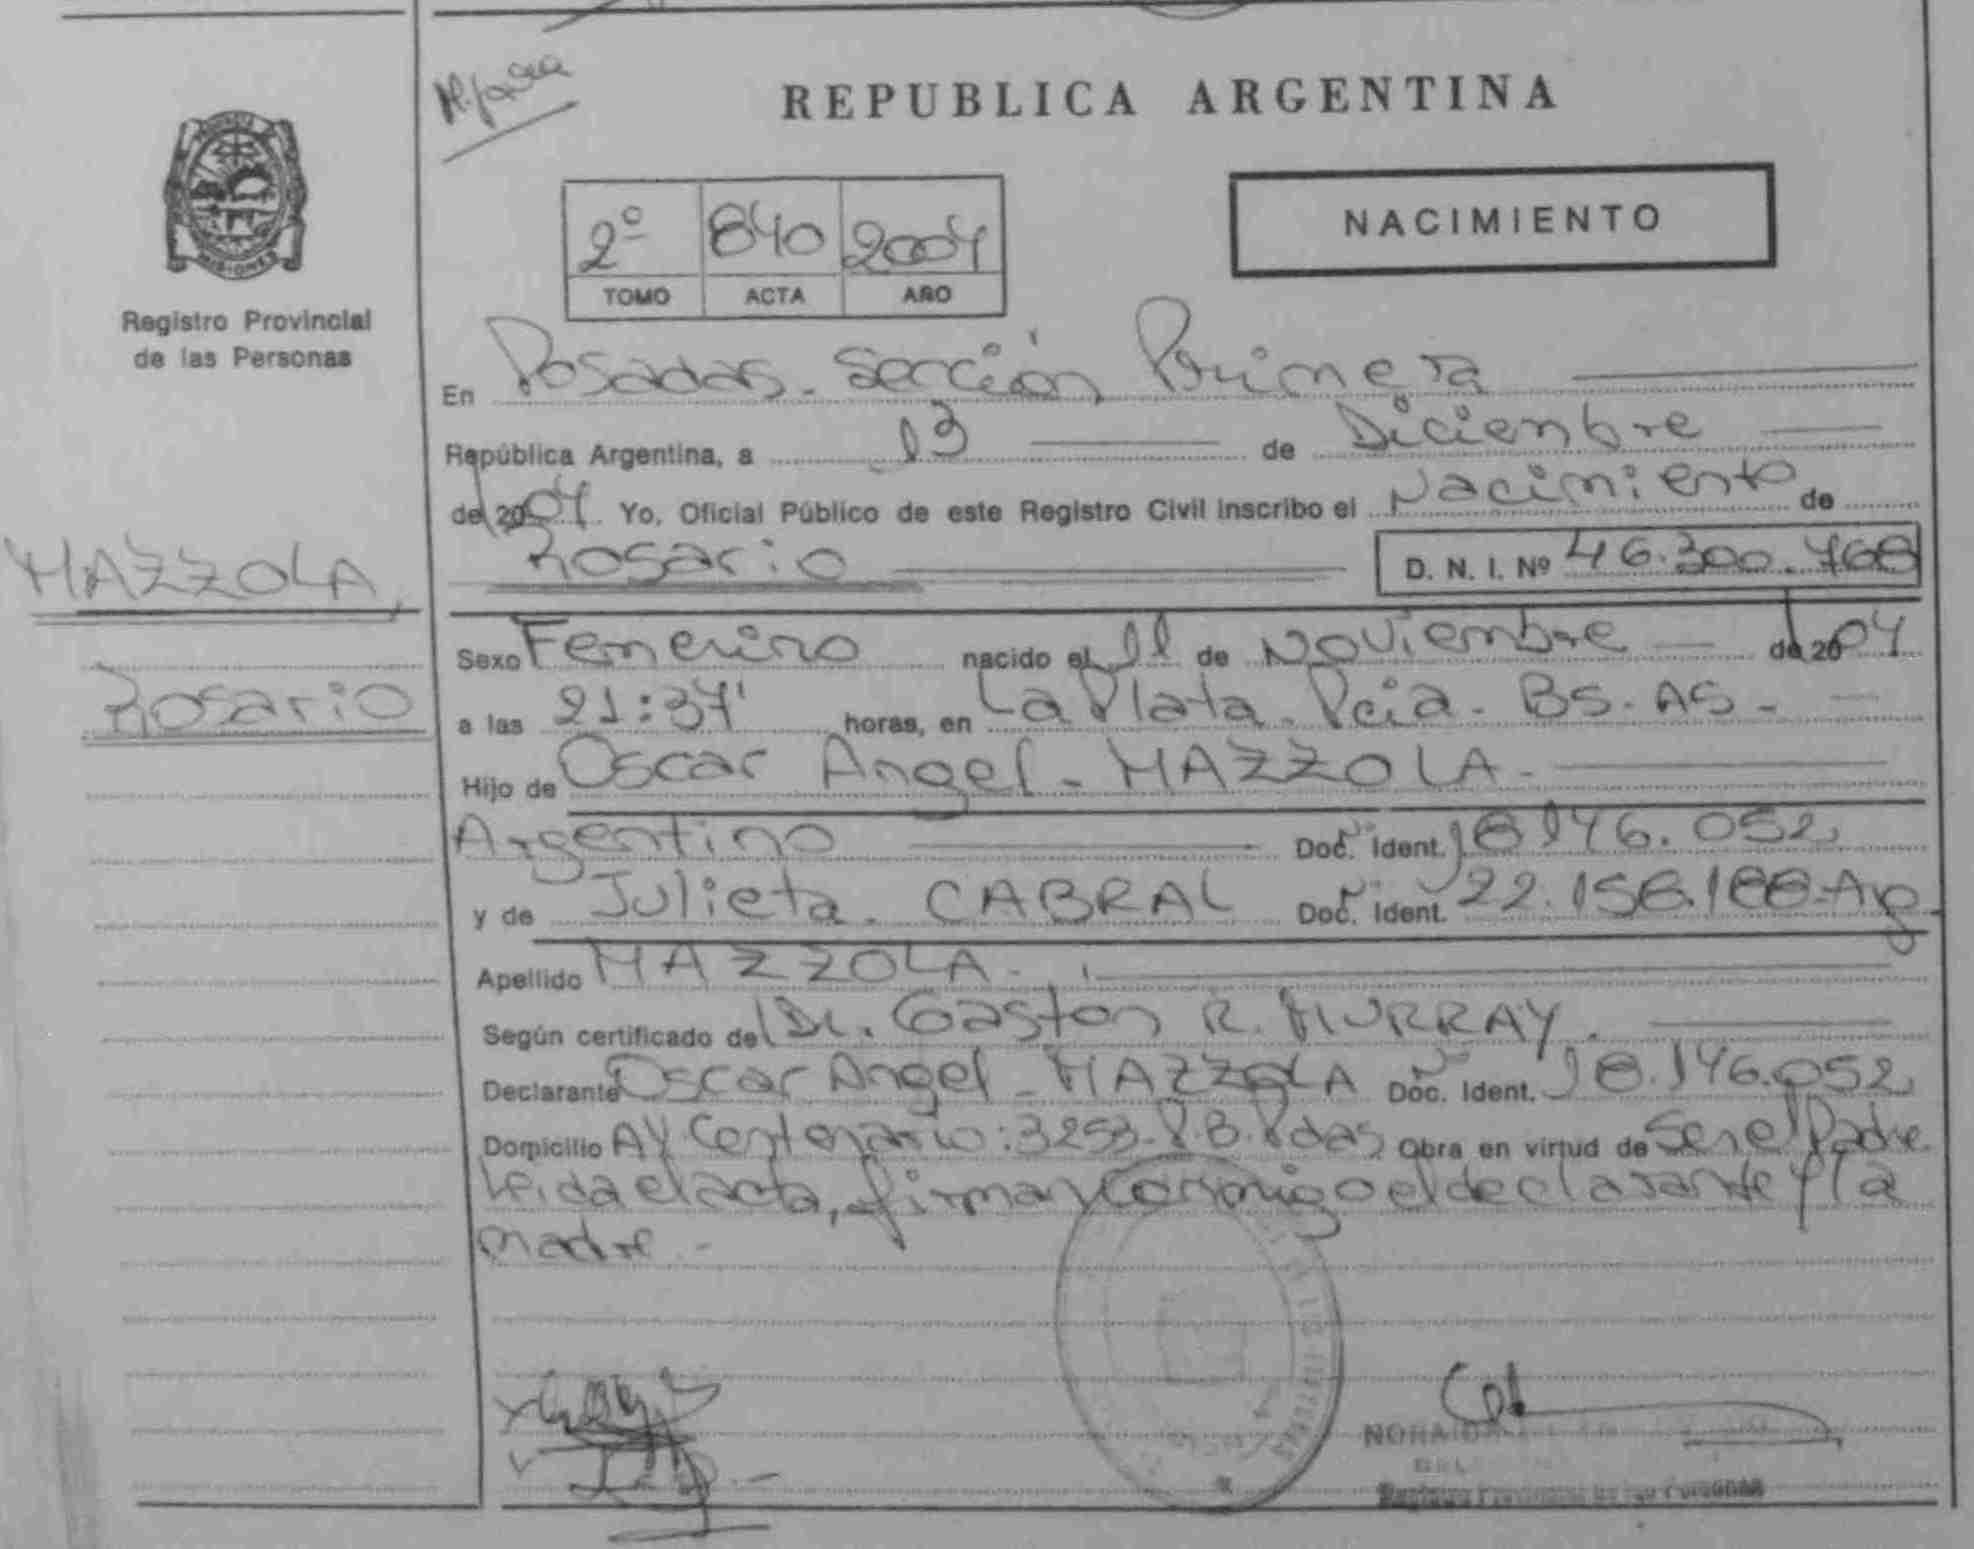 REPUBLICA ARGENTINA
MISIONES
Registro Provincial
de las Personas
2º 840 2004
TOMO ACTA AÑO
NACIMIENTO
En Posadas - Sección Primera
República Argentina, a 13 de Diciembre
de 2004 Yo, Oficial Público de este Registro Civil inscribo el Nacimiento de
Rosario D. N. I. Nº 46.300.768
MAZZOLA,
Rosario
Sexo Femenino nacido el 11 de Noviembre de 2004
a las 21:37' horas, en La Plata - Pcia - BS. AS -
Hijo de Oscar Angel - MAZZOLA -
Argentino Doc. Ident. 18.146.052
y de Julieta - CABRAL Doc. Ident. 22.158.188-Arg
Apellido MAZZOLA -
Según certificado de Dr. Gaston R. MURRAY.
Declarante Oscar Angel - MAZZOLA Doc. Ident. 18.146.052
Domicilio AV. Centenario: 3253 - P.B. Pdas Obra en virtud de Ser el Padre
Leida el acta, firman conmigo el declarante y la
madre -
Registro Provincial de las Personas